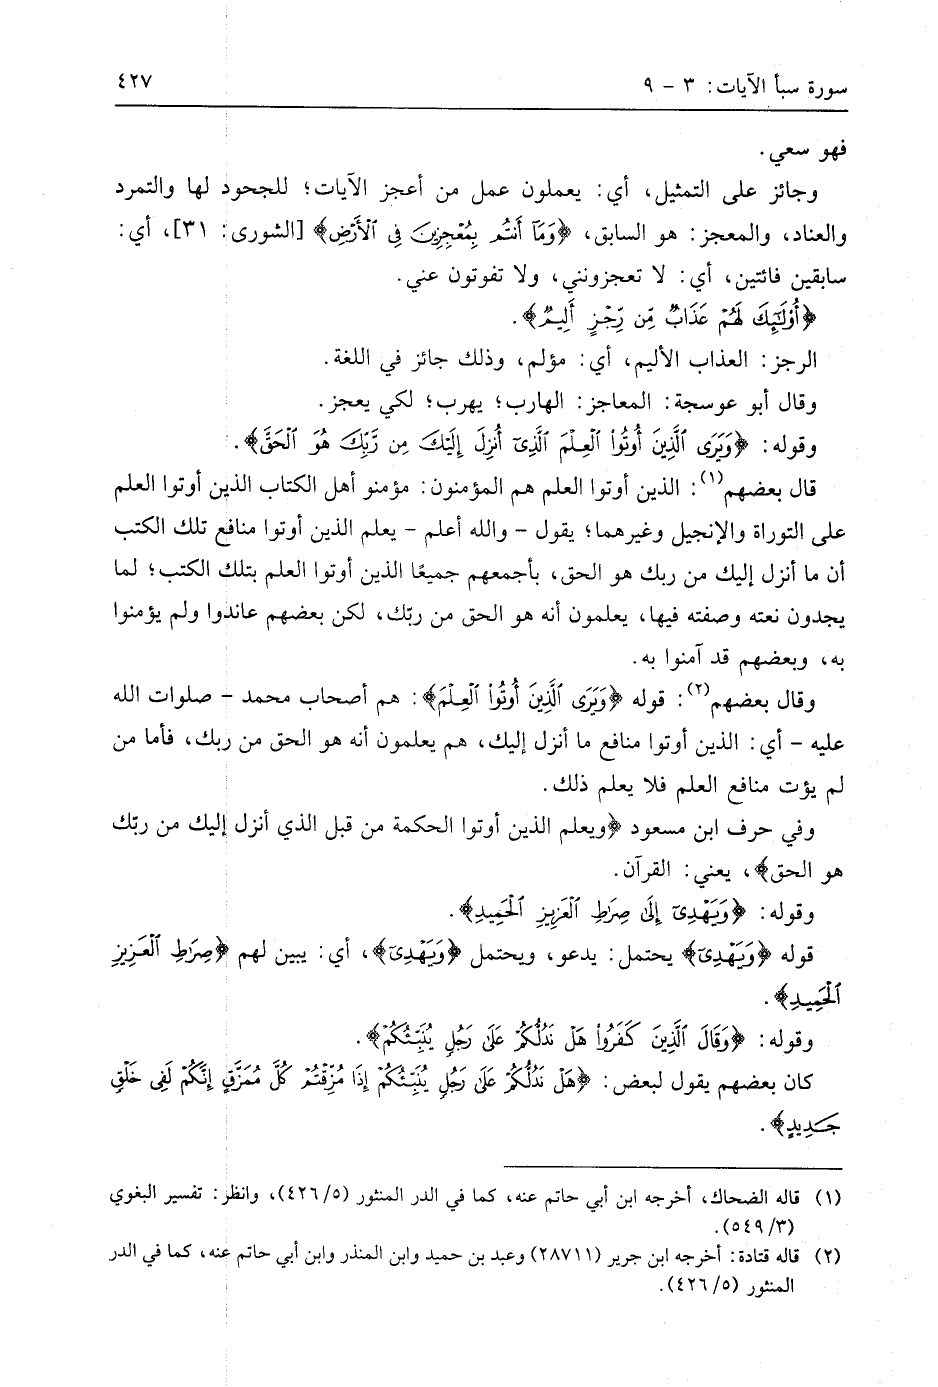 سورة سبأ الآيات: ٣ - ٩
٤٢٧
فهو سعي.
وجائز على التمثيل، أي: يعملون عمل من أعجز الآيات؛ للجحود لها والتمرد
والعناد، والمعجز: هو السابق، ﴿وَمَآ أَنتُم بِمُعْجِزِينَ فِي ٱلْأَرْضِ﴾ [الشورى: ٣١]، أي:
سابقين فائتين، أي: لا تعجزونني، ولا تفوتون عني.
﴿أُوْلَٰٓئِكَ لَهُمْ عَذَابٌ مِّن رِّجْزٍ أَلِيمٌ﴾.
الرجز: العذاب الأليم، أي: مؤلم، وذلك جائز في اللغة.
وقال أبو عوسجة: المعاجز: الهارب؛ يهرب؛ لكي يعجز.
وقوله: ﴿وَيَرَى ٱلَّذِينَ أُوتُوا۟ ٱلْعِلْمَ ٱلَّذِىٓ أُنزِلَ إِلَيْكَ مِن رَّبِّكَ هُوَ ٱلْحَقَّ﴾.
قال بعضهم(١): الذين أوتوا العلم هم المؤمنون: مؤمنو أهل الكتاب الذين أوتوا العلم
على التوراة والإنجيل وغيرهما؛ يقول - والله أعلم - يعلم الذين أوتوا منافع تلك الكتب
أن ما أنزل إليك من ربك هو الحق، بأجمعهم جميعًا الذين أوتوا العلم بتلك الكتب؛ لما
يجدون نعته وصفته فيها، يعلمون أنه هو الحق من ربّك، لكن بعضهم عاندوا ولم يؤمنوا
به، وبعضهم قد آمنوا به.
وقال بعضهم(٢): قوله ﴿وَيَرَى ٱلَّذِينَ أُوتُوا۟ ٱلْعِلْمَ﴾: هم أصحاب محمد - صلوات الله
عليه - أي: الذين أوتوا منافع ما أنزل إليك، هم يعلمون أنه هو الحق من ربك، فأما من
لم يؤت منافع العلم فلا يعلم ذلك.
وفي حرف ابن مسعود ﴿ويعلم الذين أوتوا الحكمة من قبل الذي أنزل إليك من ربّك
هو الحق﴾، يعني: القرآن.
وقوله: ﴿وَيَهْدِىٓ إِلَىٰ صِرَٰطِ ٱلْعَزِيزِ ٱلْحَمِيدِ﴾.
قوله ﴿وَيَهْدِىٓ﴾ يحتمل: يدعو، ويحتمل ﴿وَيَهْدِىٓ﴾، أي: يبين لهم ﴿صِرَٰطِ ٱلْعَزِيزِ
ٱلْحَمِيدِ﴾.
وقوله: ﴿وَقَالَ ٱلَّذِينَ كَفَرُوا۟ هَلْ نَدُلُّكُمْ عَلَىٰ رَجُلٍ يُنَبِّئُكُمْ﴾.
كان بعضهم يقول لبعض: ﴿هَلْ نَدُلُّكُمْ عَلَىٰ رَجُلٍ يُنَبِّئُكُمْ إِذَا مُزِّقْتُمْ كُلَّ مُمَزَّقٍ إِنَّكُمْ لَفِى خَلْقٍ
جَدِيدٍ﴾.
(١) قاله الضحاك، أخرجه ابن أبي حاتم عنه، كما في الدر المنثور (٤٢٦/٥)، وانظر: تفسير البغوي
(٥٤٩/٣).
(٢) قاله قتادة: أخرجه ابن جرير (٢٨٧١١) وعبد بن حميد وابن المنذر وابن أبي حاتم عنه، كما في الدر
المنثور (٤٢٦/٥).